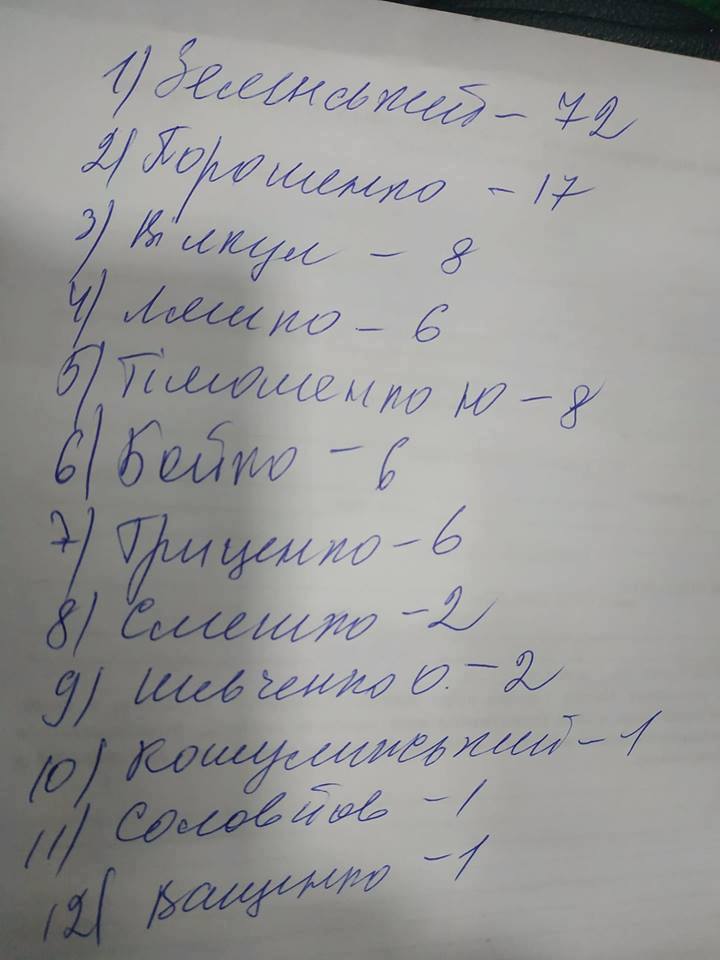 1) Зеленський - 72
2) Порошенко - 17
3) Вілкул - 8
4) Ляшко - 6
5) Тімошенко Ю - 8
6) Бойко - 6
7) Гриценко - 6
8) Смешко - 2
9) Шевченко О. - 2
10) Кошулинський - 1
11) Соловйов - 1
12) Ващенко - 1